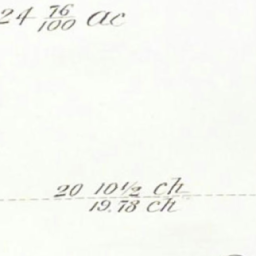 24 76/100 ac
20 10 1/2 ch
19.78 ch